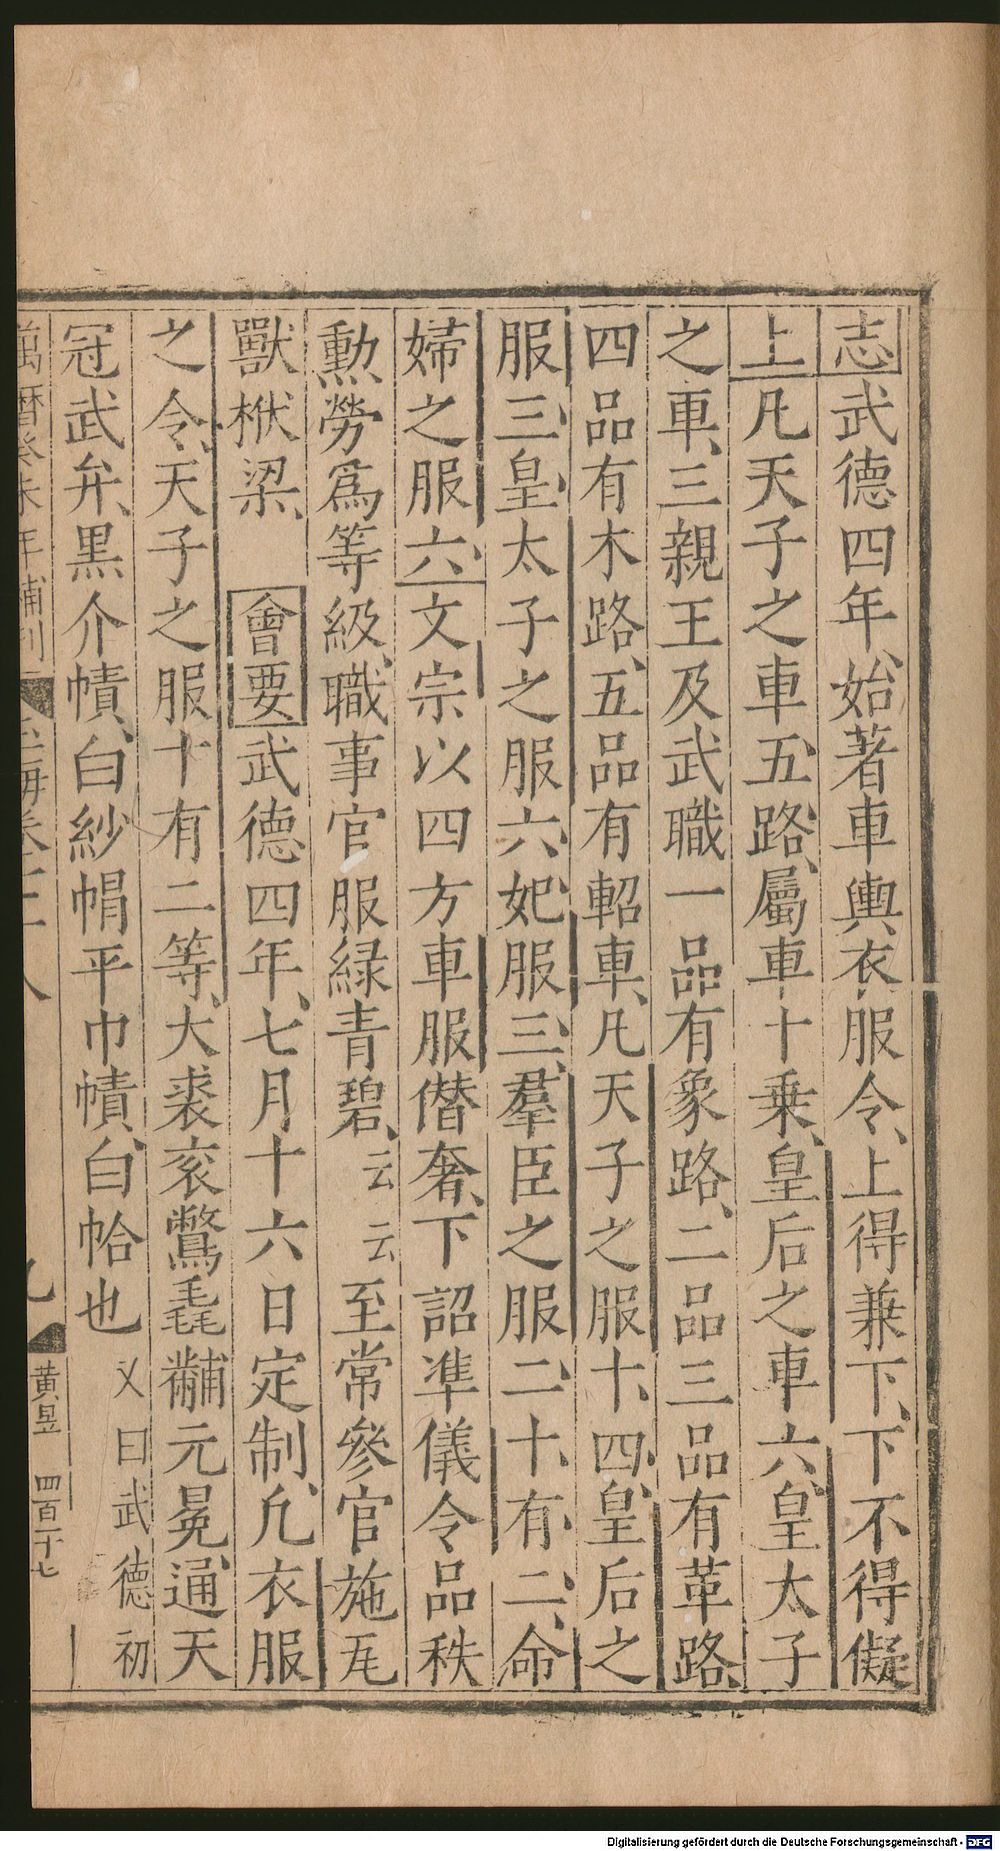 志武德四年、始著車輿衣服令、上得兼下、下不得儗
上凡天子之車五路、屬車十乗、皇后之車六、皇太子
之車、三親王及武職一品有象路、二品三品有革路、
四品有木路、五品有軺車、凡天子之服十四、皇后之
服三、皇太子之服六、妃服三、羣臣之服二十有二、命
婦之服六、文宗以四方車服僭奢、下詔準儀令品秩
勳勞爲等級、職事官服緑青碧、云云至常參官施瓦
獸栿梁、會要武德四年、七月十六日定制、凡衣服
之令、天子之服十有二等、大裘衮鷩毳黼元冕、通天
冠武弁、黒介幘、白紗帽平巾幘、白帢也 又曰武德初
萬曆癸未年補刊
九
黄昱 四百一十七
Digitalisierung gefördert durch die Deutsche Forschungsgemeinschaft - DFG